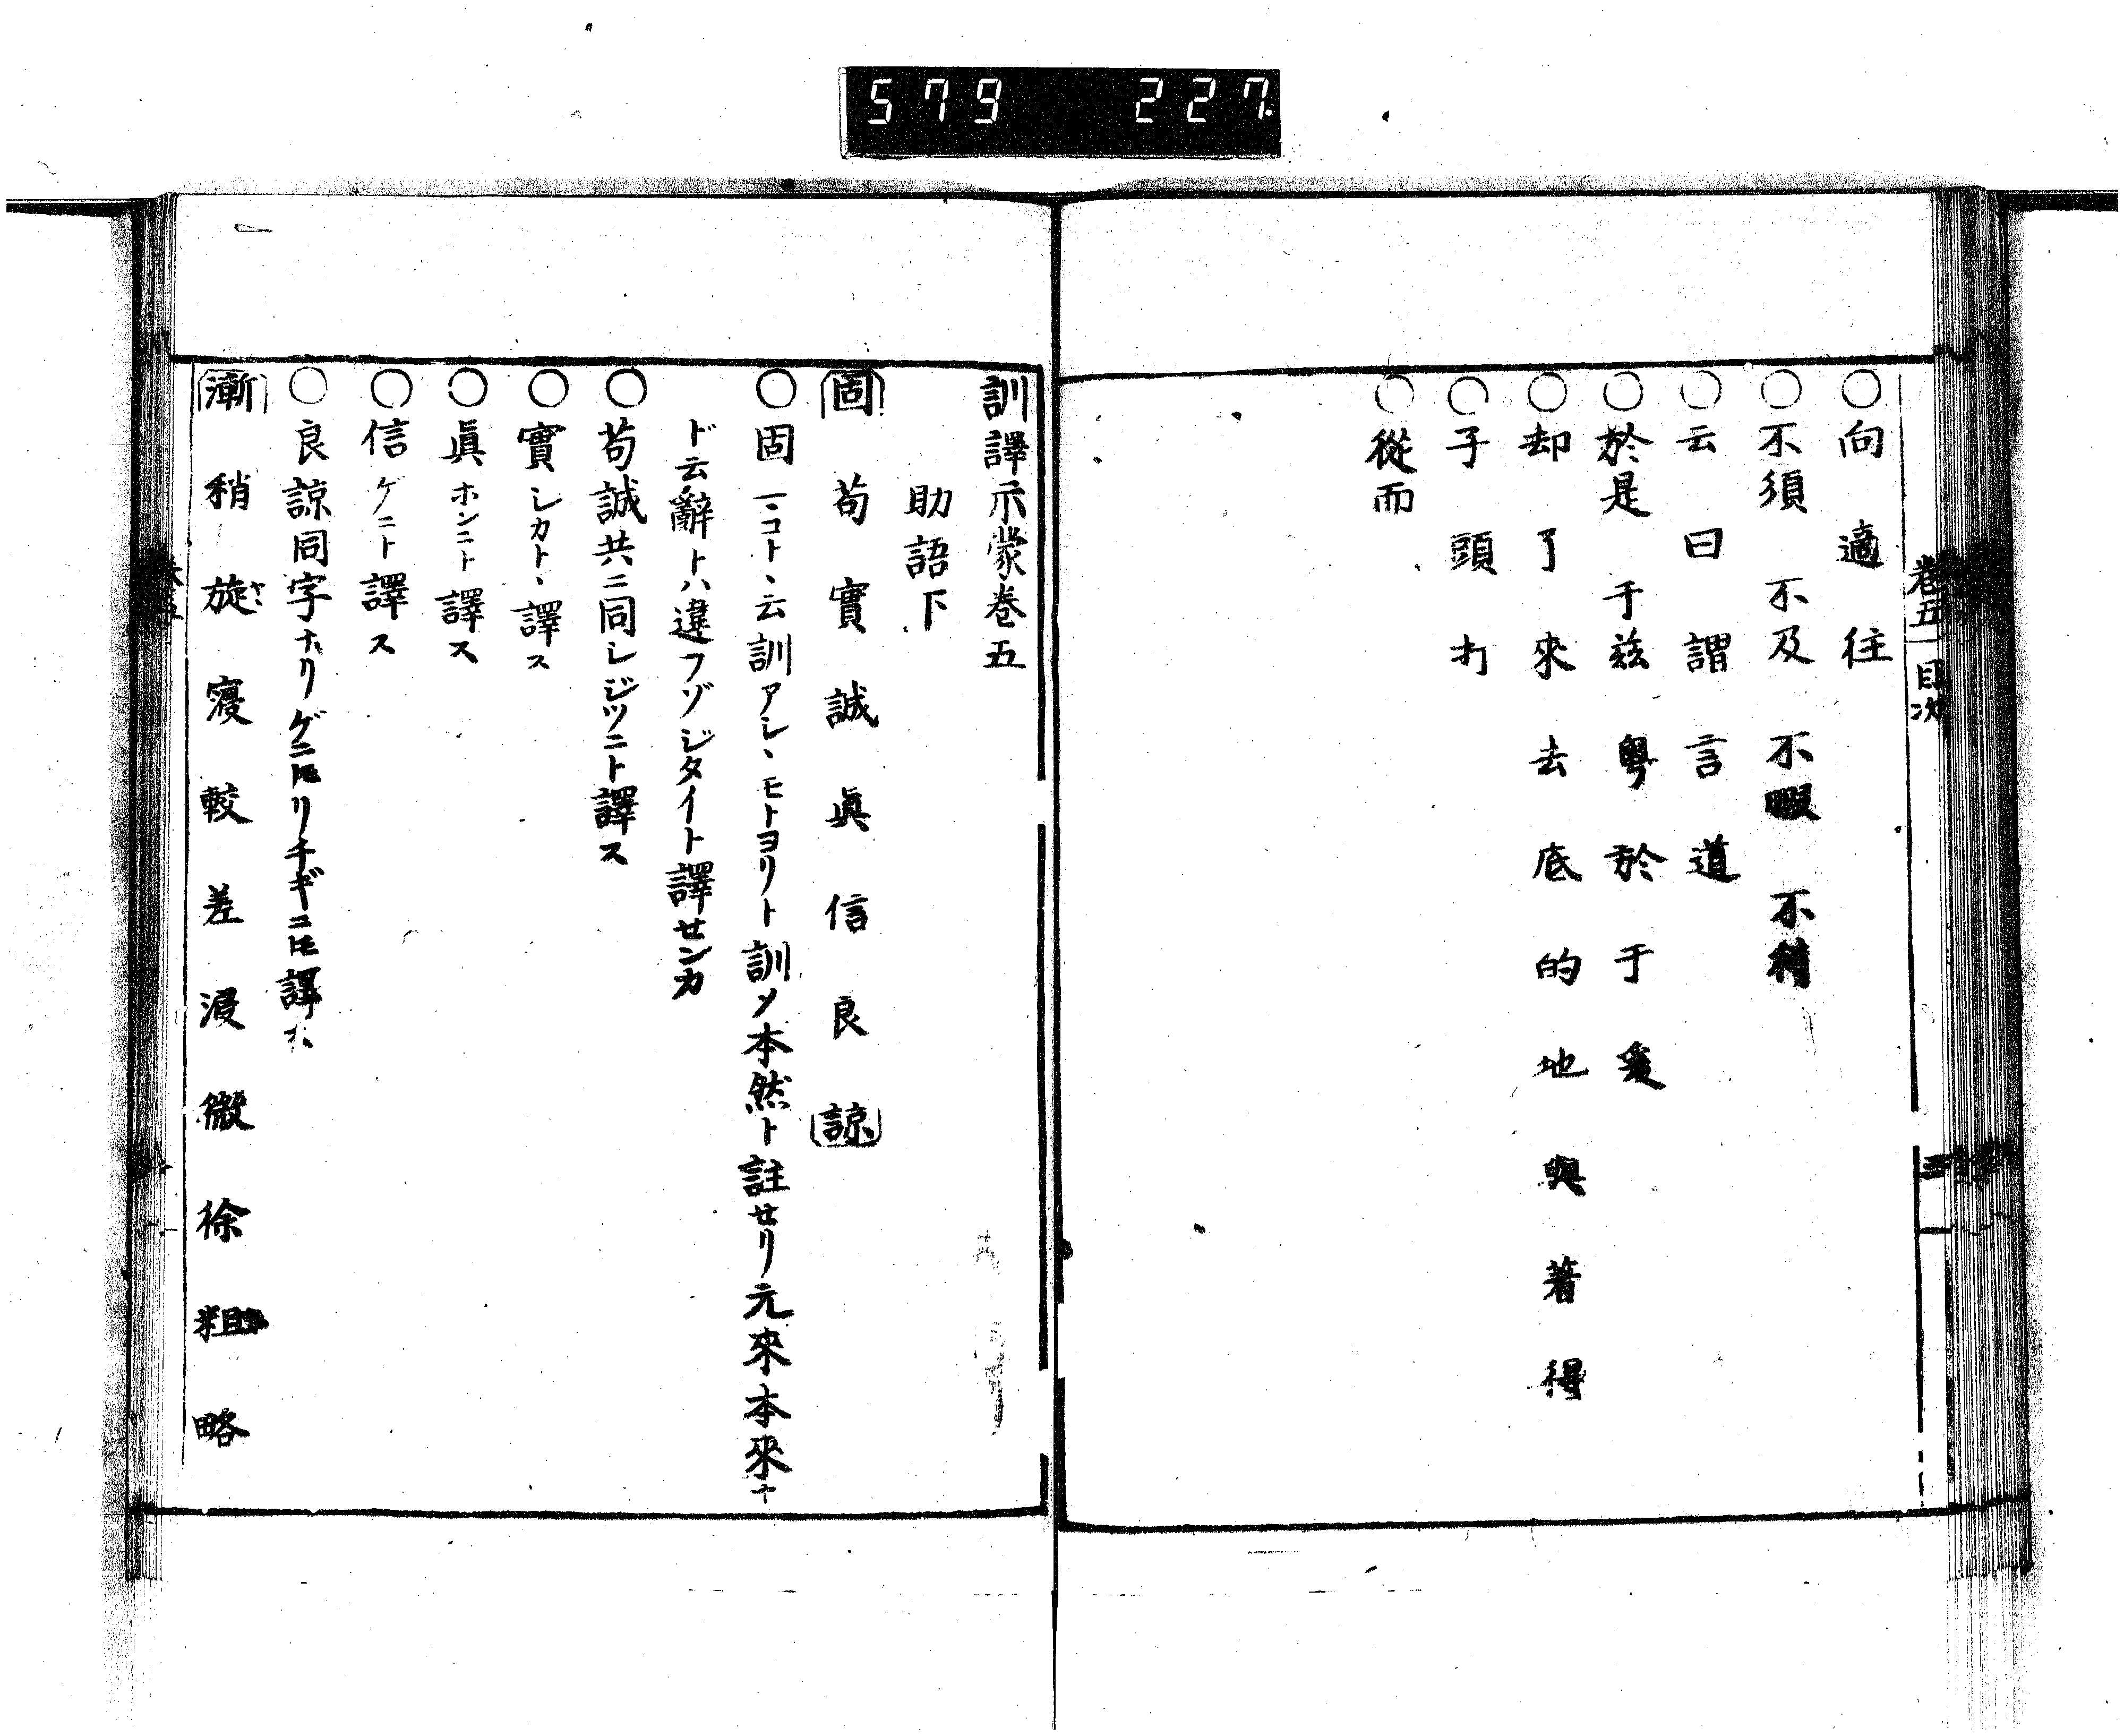 579 227
卷五 目次
三
○向 適 往
○不須 不及 不暇 不待
○云 曰 謂 言 道
○於是 于茲 粤 於 于 爰
○却 了 來 去 底 的 地 與 著 得
○子 頭 打
○從而
訓譯示蒙卷五
助語下
固 苟 實 誠 眞 信 良 諒
○固マコト、云訓アレ、モトヨリト訓メ本然ト註セリ元來本來ナ
ド云辭トハ違フゾジタイト譯センカ
○苟誠共ニ同シジツニト譯ス
○實シカト、譯ス
○眞ホンニト譯ス
○信ゲニト譯ス
○良諒同字ナリゲニ𪜈リチギニ𪜈譯ス
漸 稍 旋 寖 較 差 浸 微 徐 粗 略